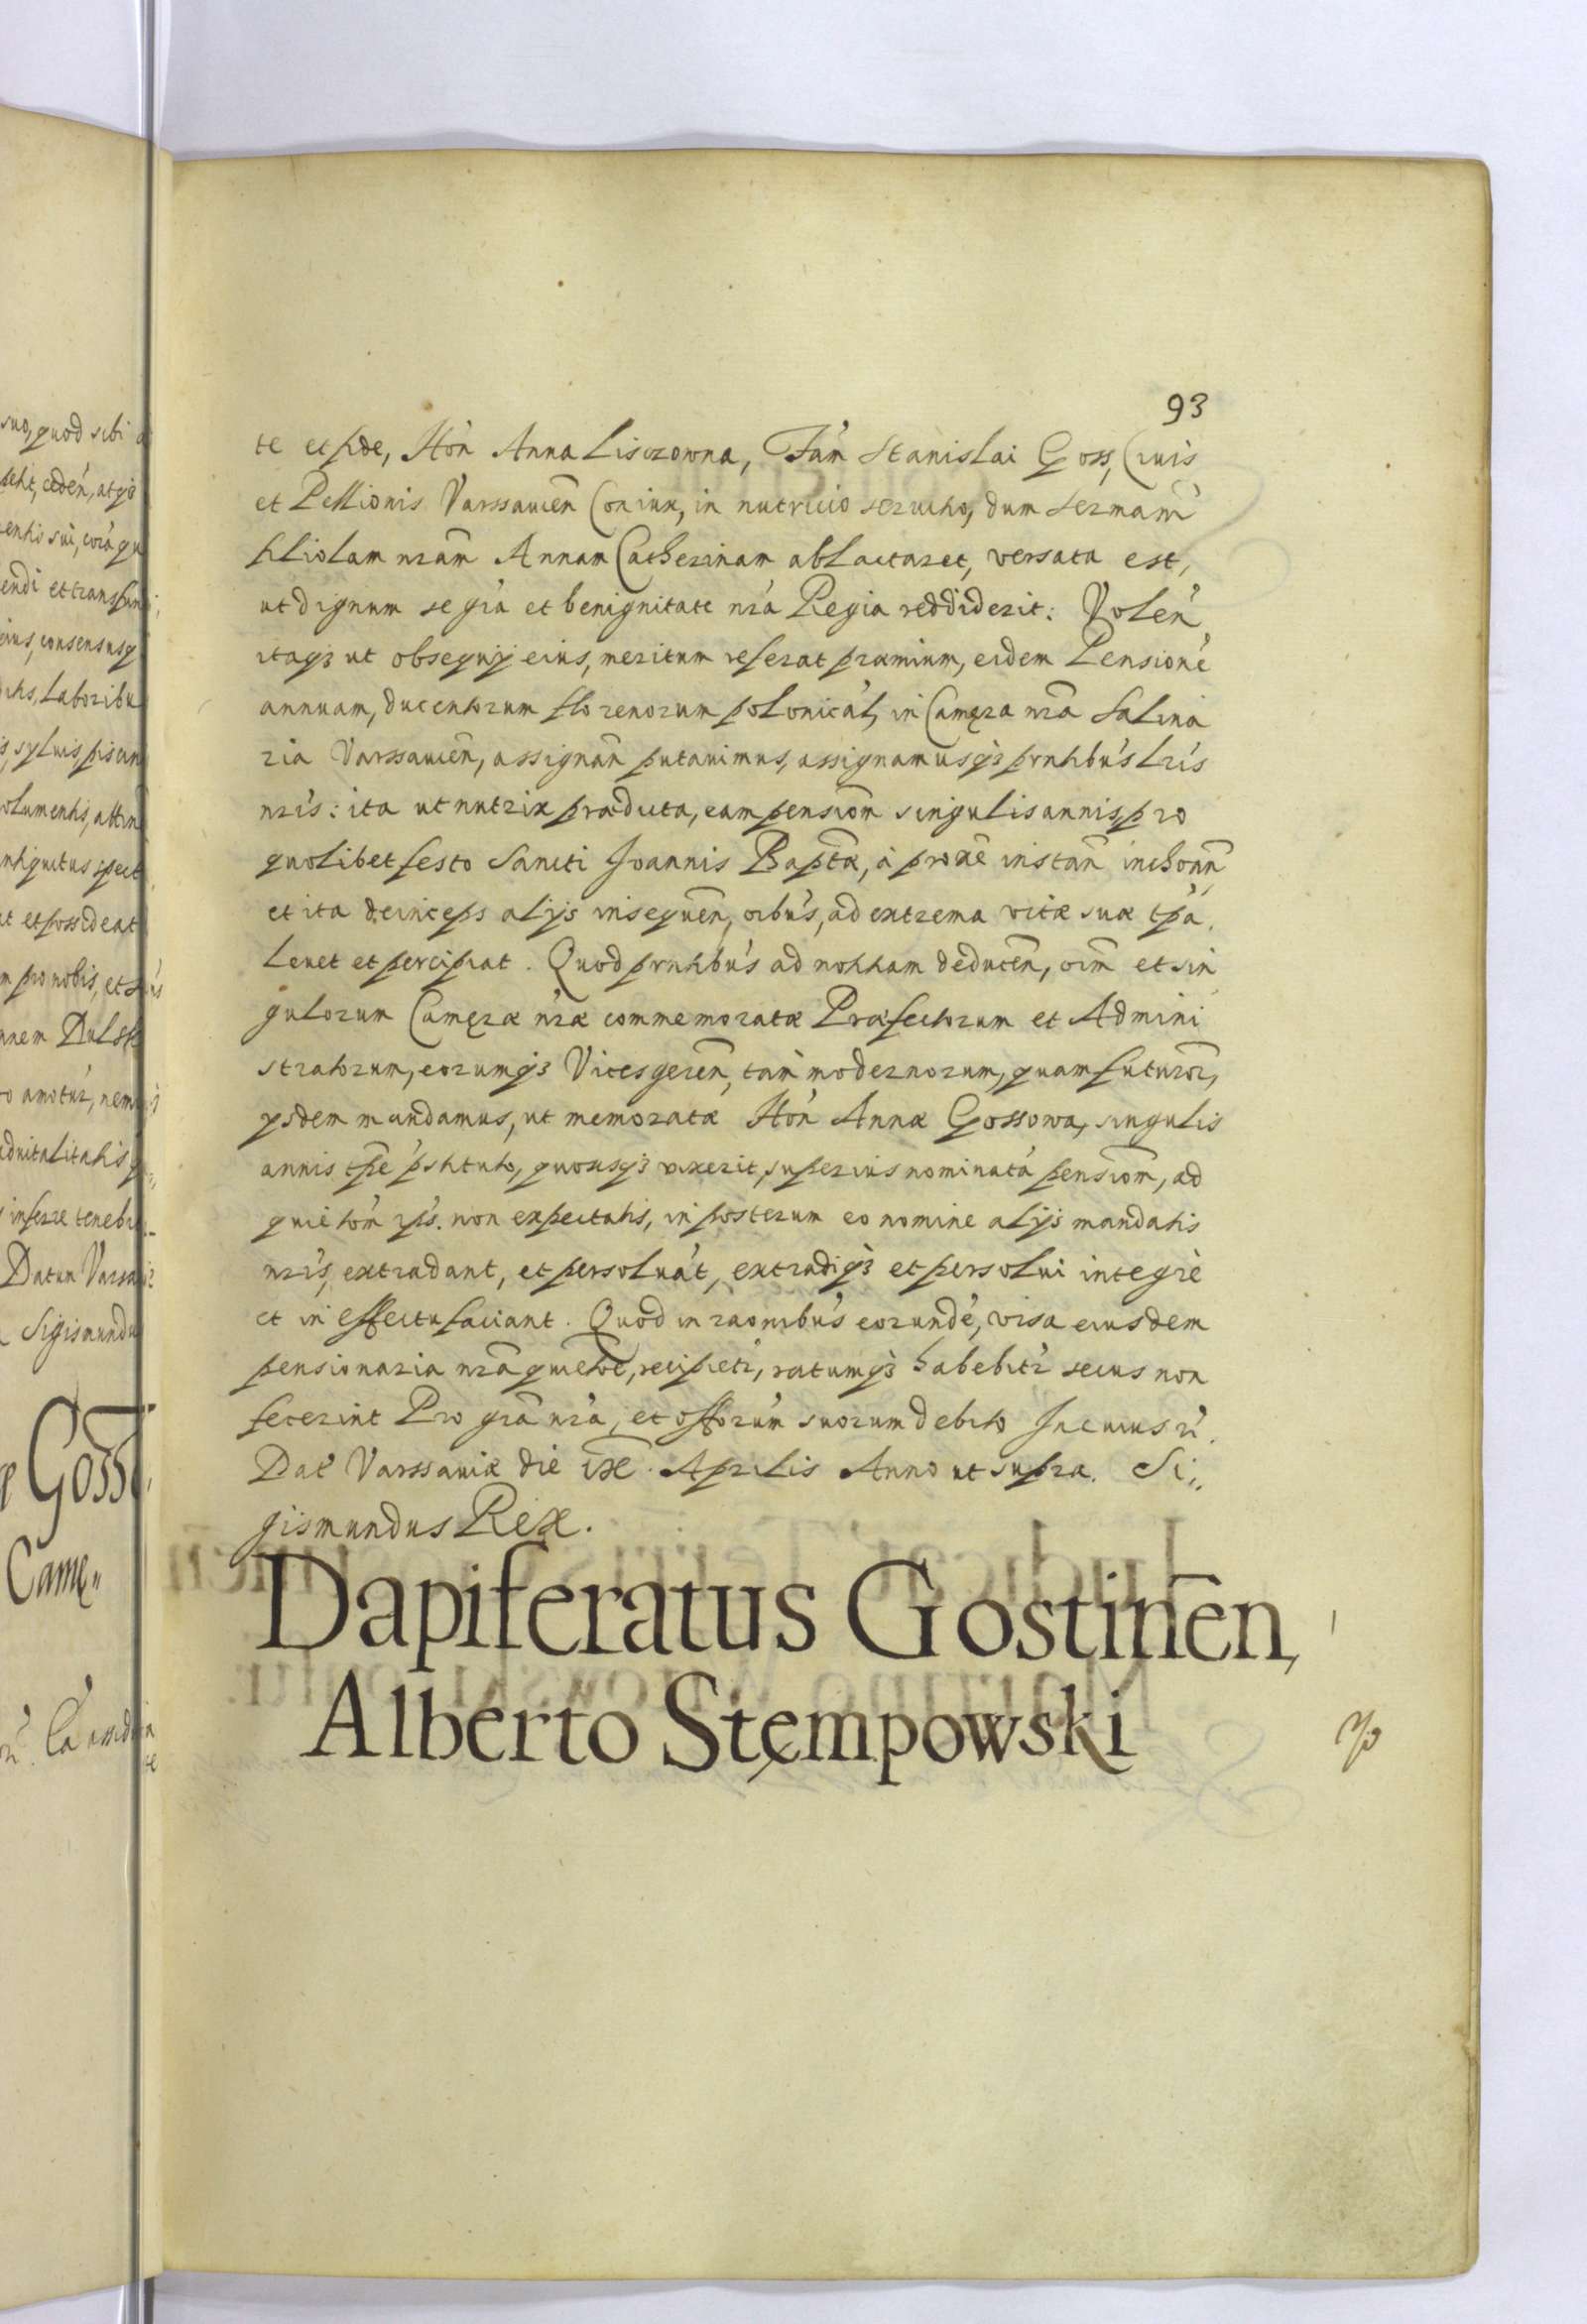 93
te et fide, Hon̄ Anna Lisczowna, Fam̄ Stanislai Goss, Ciuis
et Pellionis Varssauien̄ Coniux, in nutricio seruitio, dum Sermam̄
filiolam nram̄ Annam Catherinam ablactaret, versata est,
ut dignum se gr̄a et benignitate nr̄a Regia reddiderit: Volen̄
itaq3 ut obsequij eius, meritum referat præmium, eidem Pensionē
annuam, ducentorum florenorum polonical, in Camęra nr̄a Salina
ria Varssauien̄, assignan̄ putauimus, assignamusq3 prntibus lr̄is
nr̄is: ita ut nutrix prædicta, eam pension̄ singulis annis, pro
quolibet festo Sancti Joannis Baptæ, à proxē instan̄ inchoan̄
et ita deinceps alijs insequen̄, oībus, ad extrema vitæ suæ tp̄a.
Leuet et percipiat. Quod prntibus ad notitiam deducen̄, oīm et sin
gulorum Camęræ nr̄æ commemoratæ Præfectorum et Admini
stratorum, eorumq3 Vicesgeren̄, tam modernorum, quam futuror,
ijsdem mandamus, ut memoratæ Hon̄ Annæ Gossowa, singulis
annis tp̄e pstituto, quousq3 vixerit, superius nominatā pension̄, ad
quietom̄ ip̄s. non expectatis, in posterum eo nomine alijs mandatis
nr̄is, extradant, et persoluāt, extradiq3 et persolui integrè
et in effectu faciant. Quod in raōnibus eorundē, visa eiusdem
pensionaria nr̄a quietoē, recipietr, ratumq3 habebitr secus non
fecerint Pro gr̄a nr̄a, et offorūm suorum debito In cuius ri.
Dat Varssauiæ die ix. Aprilis Anno ut supra. Si„
gismundus Rex.
Dapiferatus Gostinen̄,
Alberto Stęmpowski